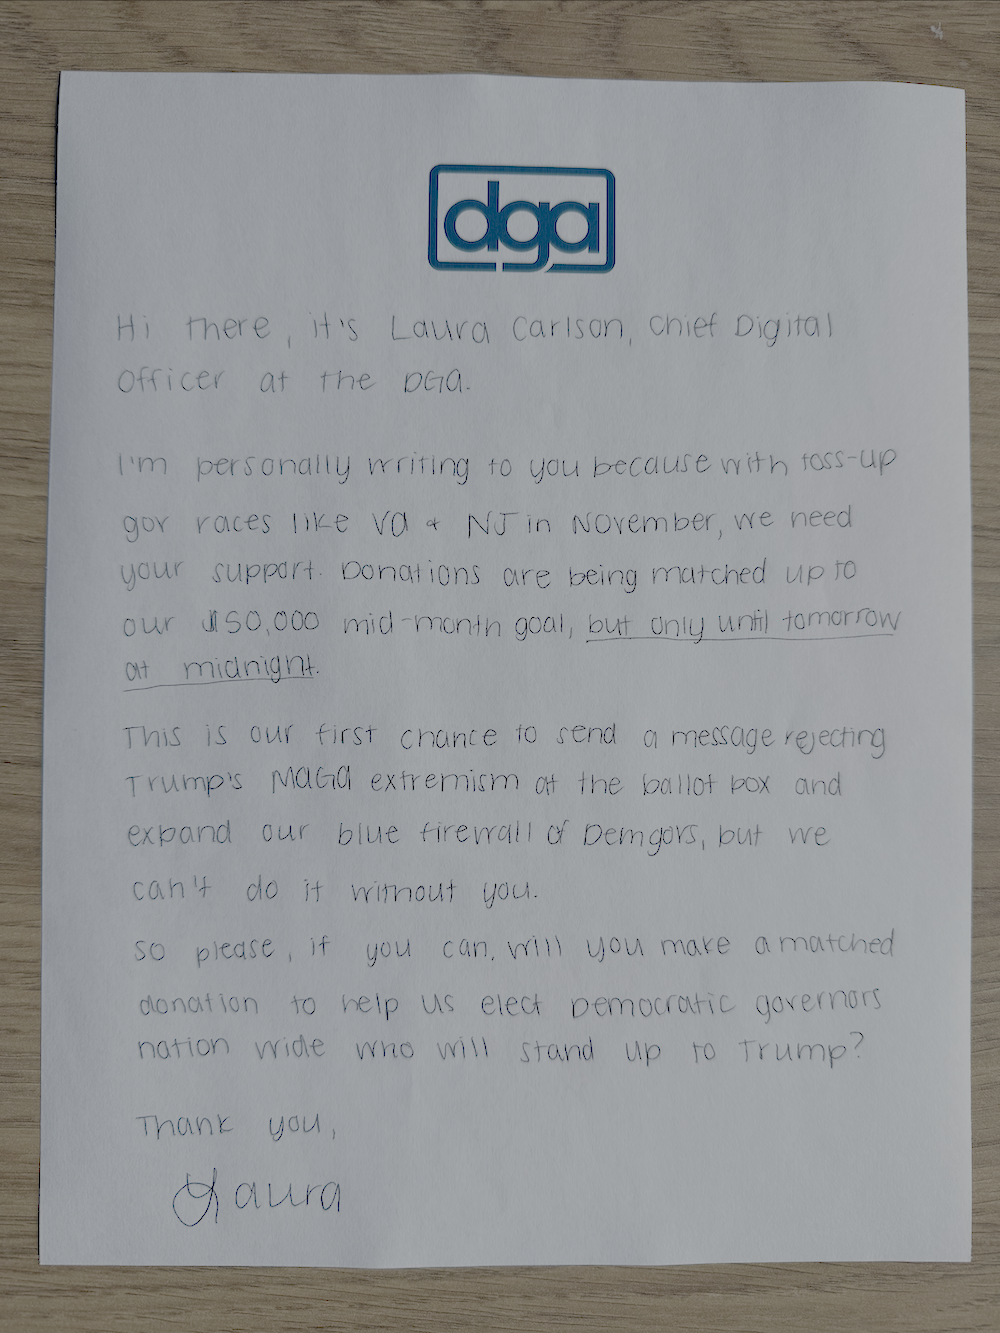 dga
Hi there, it's Laura Carlson, Chief Digital
Officer at the DGA.
I'm personally writing to you because with toss-up
gov races like VA & NJ in November, we need
your support. Donations are being matched up to
our $150,000 mid-month goal, but only until tomorrow
at midnight.
This is our first chance to send a message rejecting
Trump's MAGA extremism at the ballot box and
expand our blue firewall of Dem govs, but we
can't do it without you.
So please, if you can, will you make a matched
donation to help us elect Democratic governors
nation wide who will stand up to Trump?
Thank you,
Laura